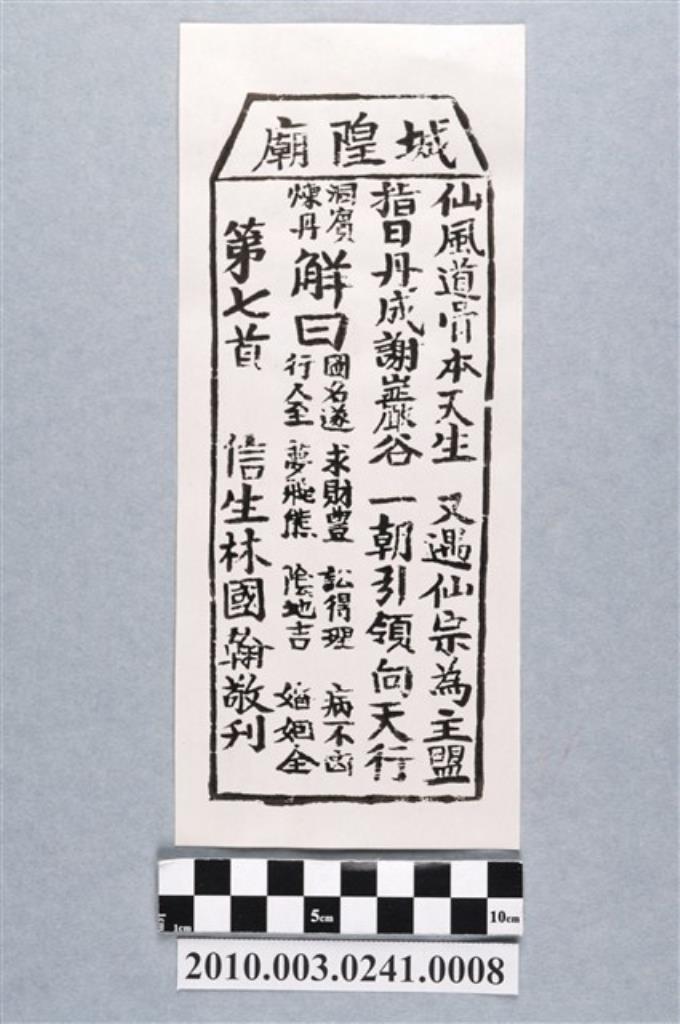 城隍廟
仙風道骨本天生 又遇仙宗為主盟
指日丹成謝巖谷 一朝引領向天行
洞賓煉丹
解曰
圖名遂 求財豐 訟得理 病不凶
行人至 夢飛熊 陰地吉 婚姻全
第七首 信生林國翰敬刊
5cm
10cm
1cm
2010.003.0241.0008